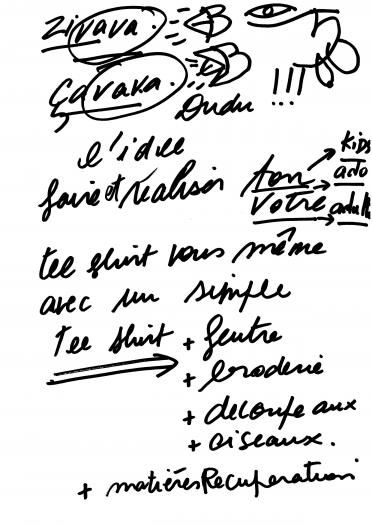 Zivava.
Çavava.
Dudu !!!
l'idée
faire et réaliser ton → Kids
→ ado
votre → adulte
tee shirt vous même
avec un simple
Tee Shirt + feutre
+ broderie
+ decoupe aux
+ ciseaux.
+ matières Recuperation